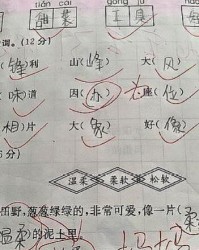 tián cài gōng jù
甜菜 工具
词。(12分)
(锋)利 山(峰) 大(风)
(味)道 因(为) 座(位)
(相)片 大(象) 好(像)
分)
温柔 柔软 松软
田野,葱葱绿绿的,非常可爱,像一片(柔
温柔)的泥土里